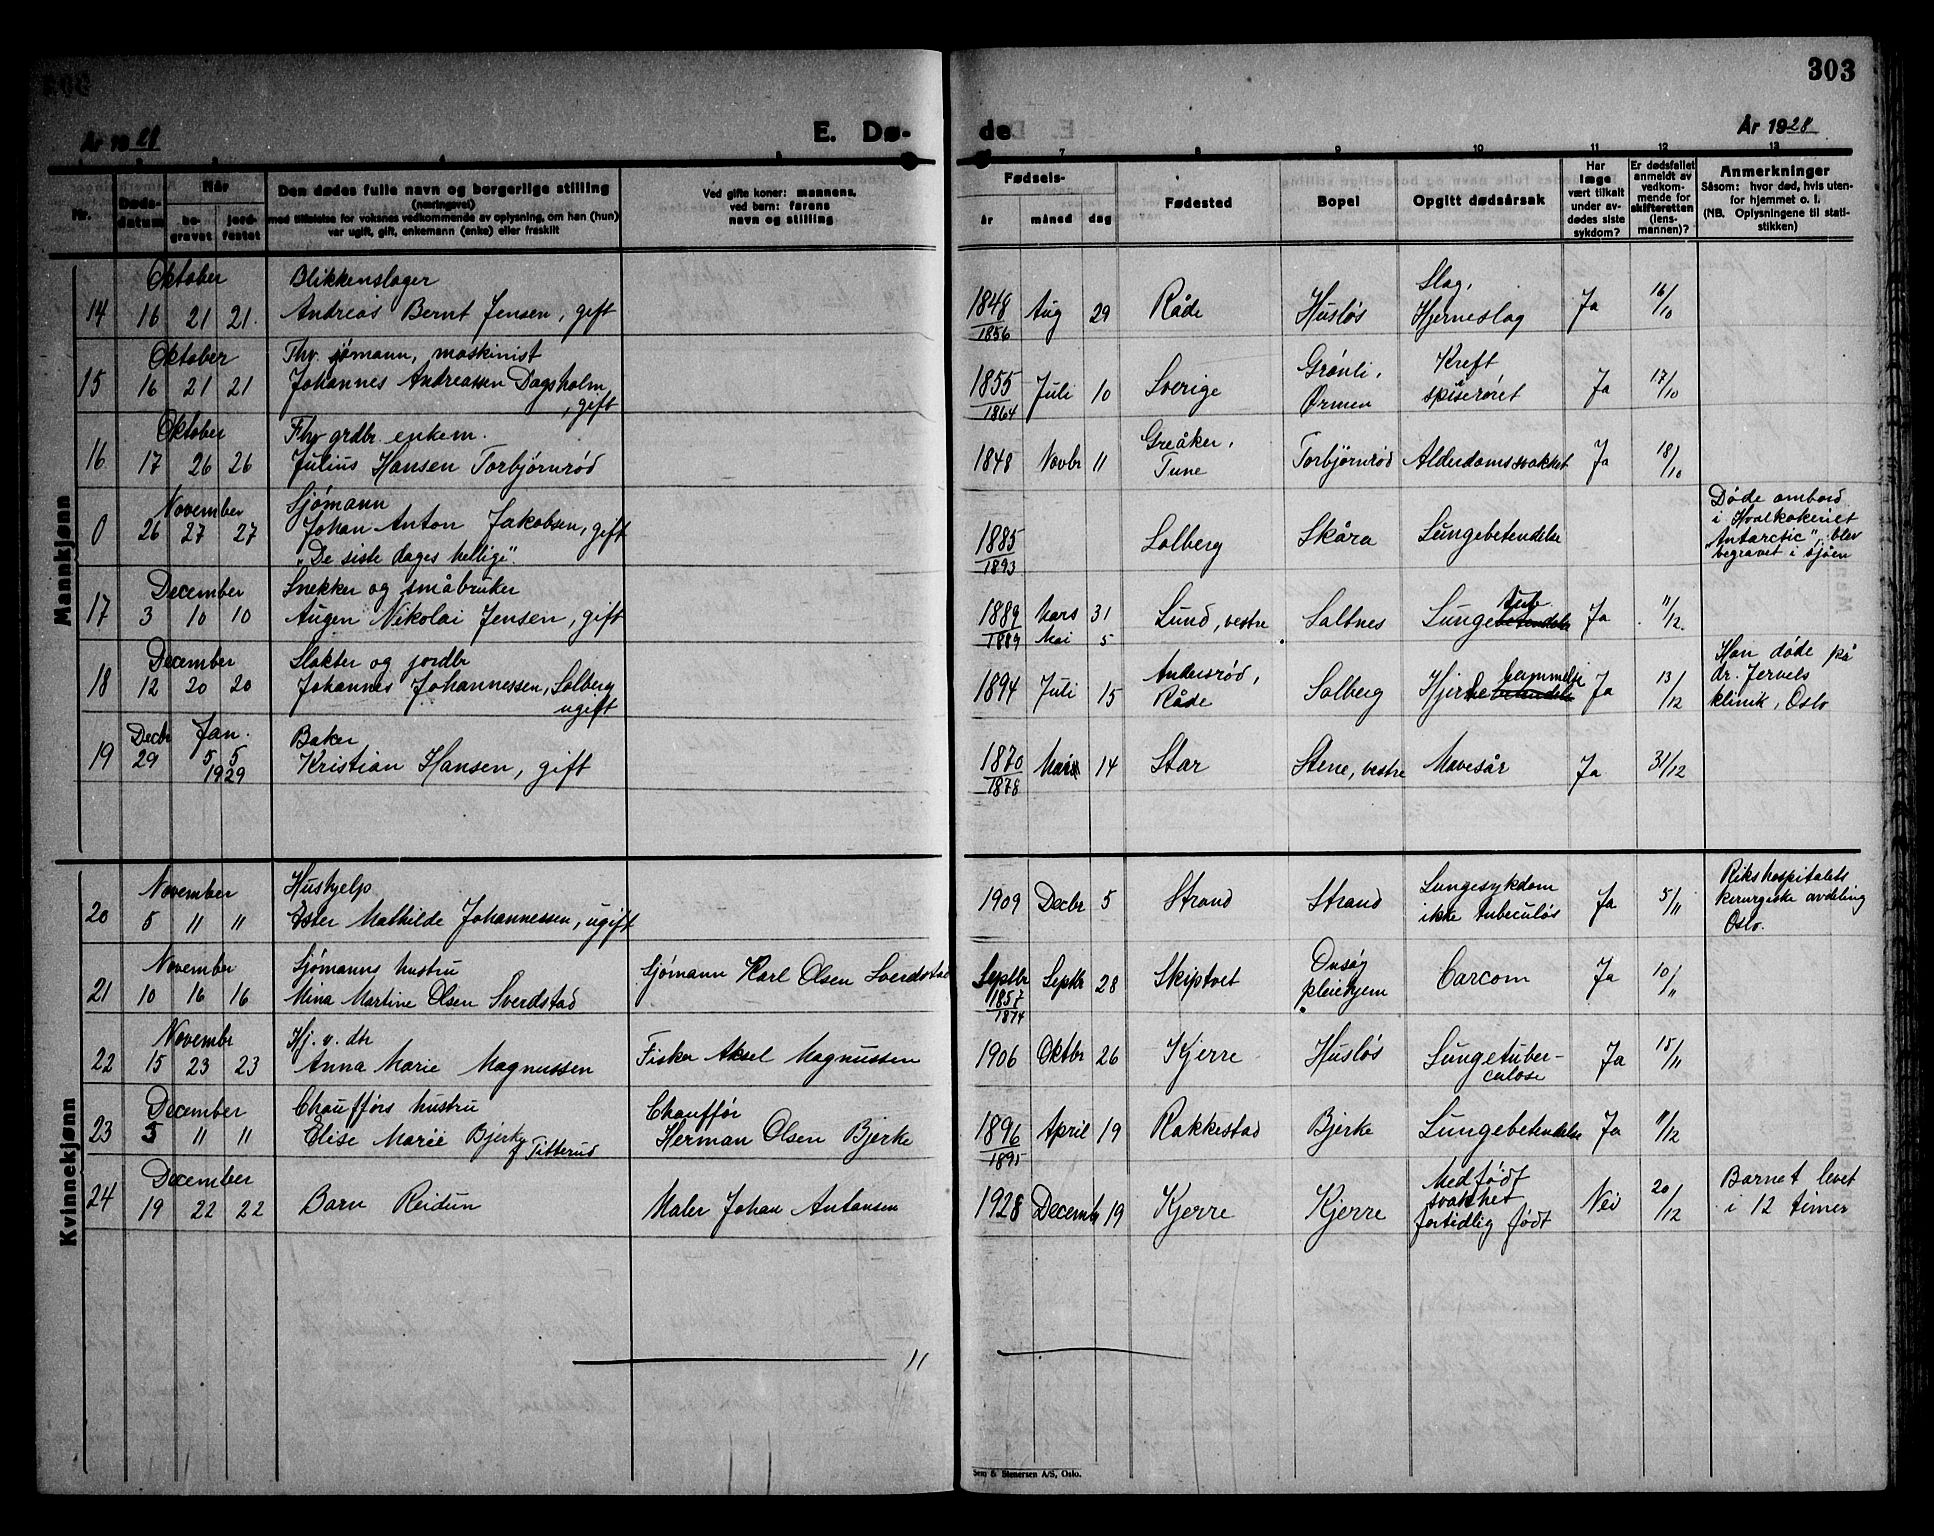 303
År 1928
E. Dø-
de
År 1928
7 8 9 10 11 12 13
Nr.
Døds-
datum
Når
be-
gravet
jord-
festet
Den dødes fulle navn og borgerlige stilling
(næringsvei)
med tilføielse for voksnes vedkommende av oplysning, om han (hun)
var ugift, gift, enkemann (enke) eller fraskilt
Ved gifte koner: mannens,
ved barn: farens
navn og stilling
Fødsels-
år måned dag
Fødested
Bopel
Opgitt dødsårsak
Har
læge
vært tilkalt
under av-
dødes siste
sykdom?
Er dødsfallet
anmeldt av
vedkom-
mende for
skifteretten
(lens-
mannen)?
Anmerkninger
Såsom: hvor død, hvis uten-
for hjemmet o. l.
(NB. Oplysningene til stati-
stikken)
Mannkjønn
Oktober Blikkenslager Slag,
14 16 21 21. Andreas Bernt Jensen, gift 1848 Aug 29 Råde Husløs Hjerneslag Ja 16/10
1856
Oktober Fhv. sjømann, maskinist Grønli, Kreft
15 16 21 21 Johannes Andreassen Dagsholm, 1855 Juli 10 Sverige Ørmen spiserøret Ja 17/10
, gift 1864
Oktober Fhv grdbr. enkem. Greåker,
16 17 26 26 Julius Hansen Torbjørnrød 1848 Novbr 11 Tune Torbjørnrød Alderdomssvakhet Ja 18/10
November Sjømann Døde ombord
0 26 27 27 Johan Anton Jakobsen, gift 1885 Solberg Skåra Lungebetendelse i Hvalkokeriet
"De siste dages hellige". 1893 "Antarctic", blev
begravet i sjøen
December Snekker og småbruker tub.
17 3 10 10 Augen Nikolai Jensen, gift 1889 Mars 31 Lund, vestre Saltnes Lungebetendelse Ja 11/12.
1889 Mai 5
December Slakter og jordbr Andersrød, lammelse Han døde på
18 12 20 20 Johannes Johannessen, Solberg 1894 Juli 15 Råde Solberg Hjertebetendelse Ja 13/12 dr. Jervels
ugift klinik, Oslo
Decbr Jan. Baker
19 29 5 5 Kristian Hansen, gift 1870 14 Star Stene, vestre Mavesår Ja 31/12
1929 1878
Kvinnekjønn
November Hushjelp Lungesykdom Rikshospitalets
20 5 11 11 Ester Mathilde Johannessen, ugift 1909 Decbr 5 Strand Strand ikke tubeculøs Ja 5/11 kirurgiske avdeling
Oslo.
November Sjømanns hustru Sjømann Karl Olsen Sverdstad Septbr Onsøy
21 10 16 16 Mina Martine Olsen Sverdstad 1857 Septbr 28 Skiptvet pleiehjem Carcom Ja 10/11
1874
Novembr Hj. v. dtr
22 15 23 23 Anna Marie Magnussen Fisker Aksel Magnussen 1906 Oktbr 26 Kjerre Husløs Lungetuber- Ja 15/11
culose
December Chaufførs hustru Chauffør
23 5 11 11 Elise Marie Bjerke Herman Olsen Bjerke 1896 April 19 Rakkestad Bjerke Lungebetendelse Ja 11/12
f Titterud 1895
December Medfødt
24 19 22 22 Barn Reidun Maler Johan Antonsen 1928 Decembr 19 Kjerre Kjerre svakhet Nei 20/12 Barnet levet
fortidlig født i 12 timer
11
Sem & Stenersen A/S, Oslo.